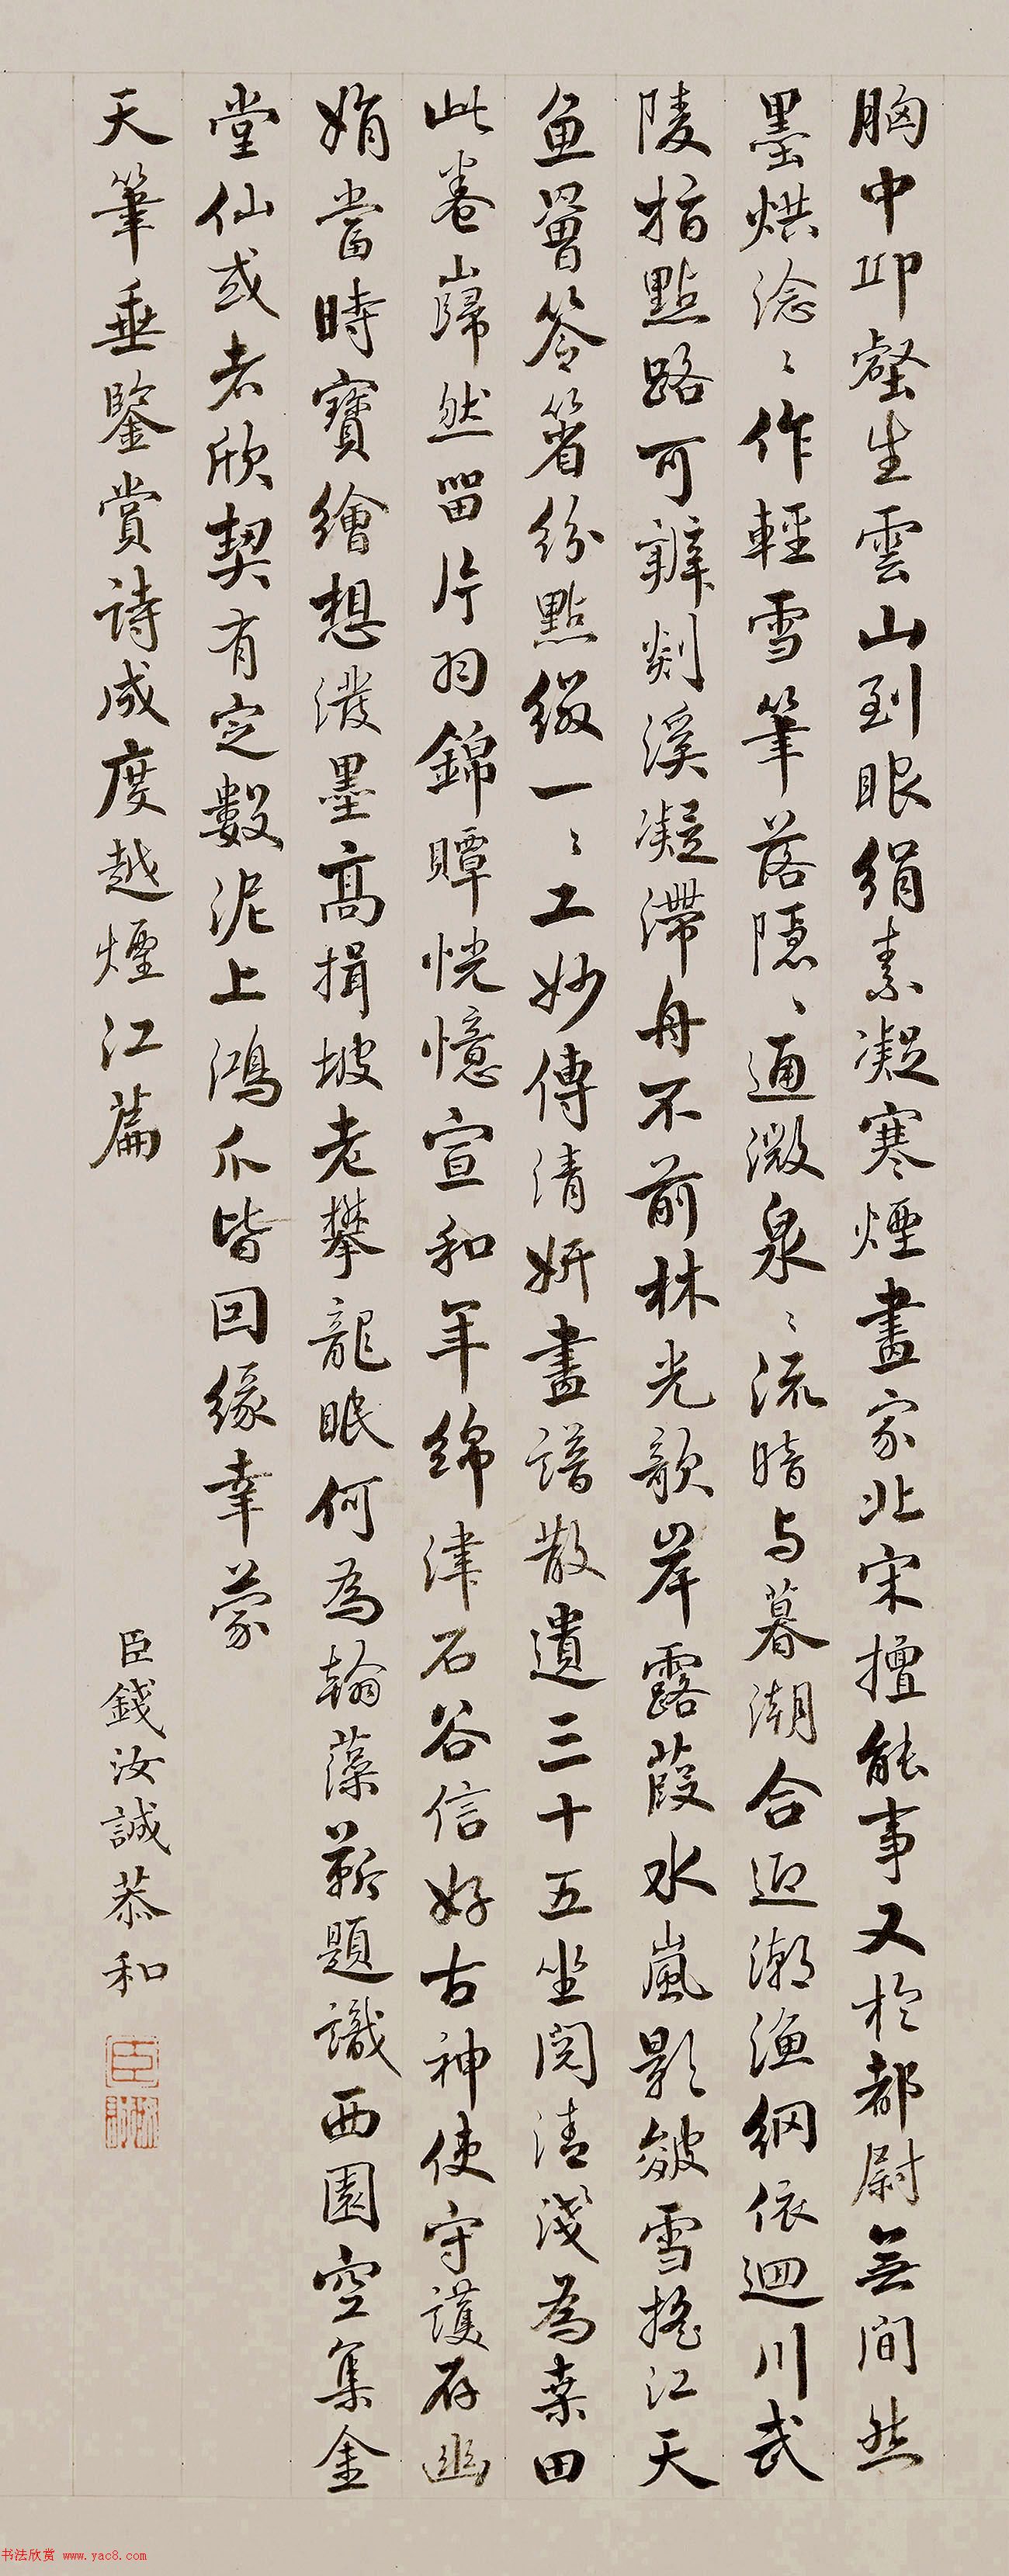 胸中邱壑生雲山到眼絹素凝寒煙畫家北宋擅能事又於都尉無間然
墨烘淰〻作輕雪筆落隱〻通微泉〻流暗与暮潮合迎潮漁網依迴川武
陵指點路可辨剡溪凝滯舟不前林光歙岸露葭水嵐影皴雪搖江天
魚罾笭箵紛點綴一〻工妙傳清妍畫譜散遺三十五坐閱清淺為桒田
此卷巋然留片羽錦贉恍憶宣和年錦津石谷信好古神使守護存幽
娟當時寶繪想潑墨高揖坡老攀龍眠何為翰藻蘄題識西園空集金
堂仙或者欣契有定數泥上鴻爪皆因緣幸蒙
天筆垂鑒賞詩成度越煙江篇
臣錢汝誠恭和
书法欣赏 www.yac8.com